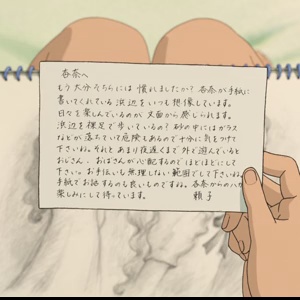 杏奈へ
もう大分そちらには慣れましたか？杏奈が手紙に
書いてくれている浜辺をいつも想像しています。
日々を楽しんでいるのが文面から感じられます。
浜辺を裸足で歩いているの？砂の中にはガラス
などが落ちていて危険もあるので十分に気をつけて
下さいね。それとあまり夜遅くまで外で遊んでいると
おじさん、おばさんが心配するのでほどほどにして
下さい。お手伝いも無理しない範囲でして下さいね。
手紙でお話するのも良いものですね。杏奈からのハガ
楽しみにして待っています。 頼子